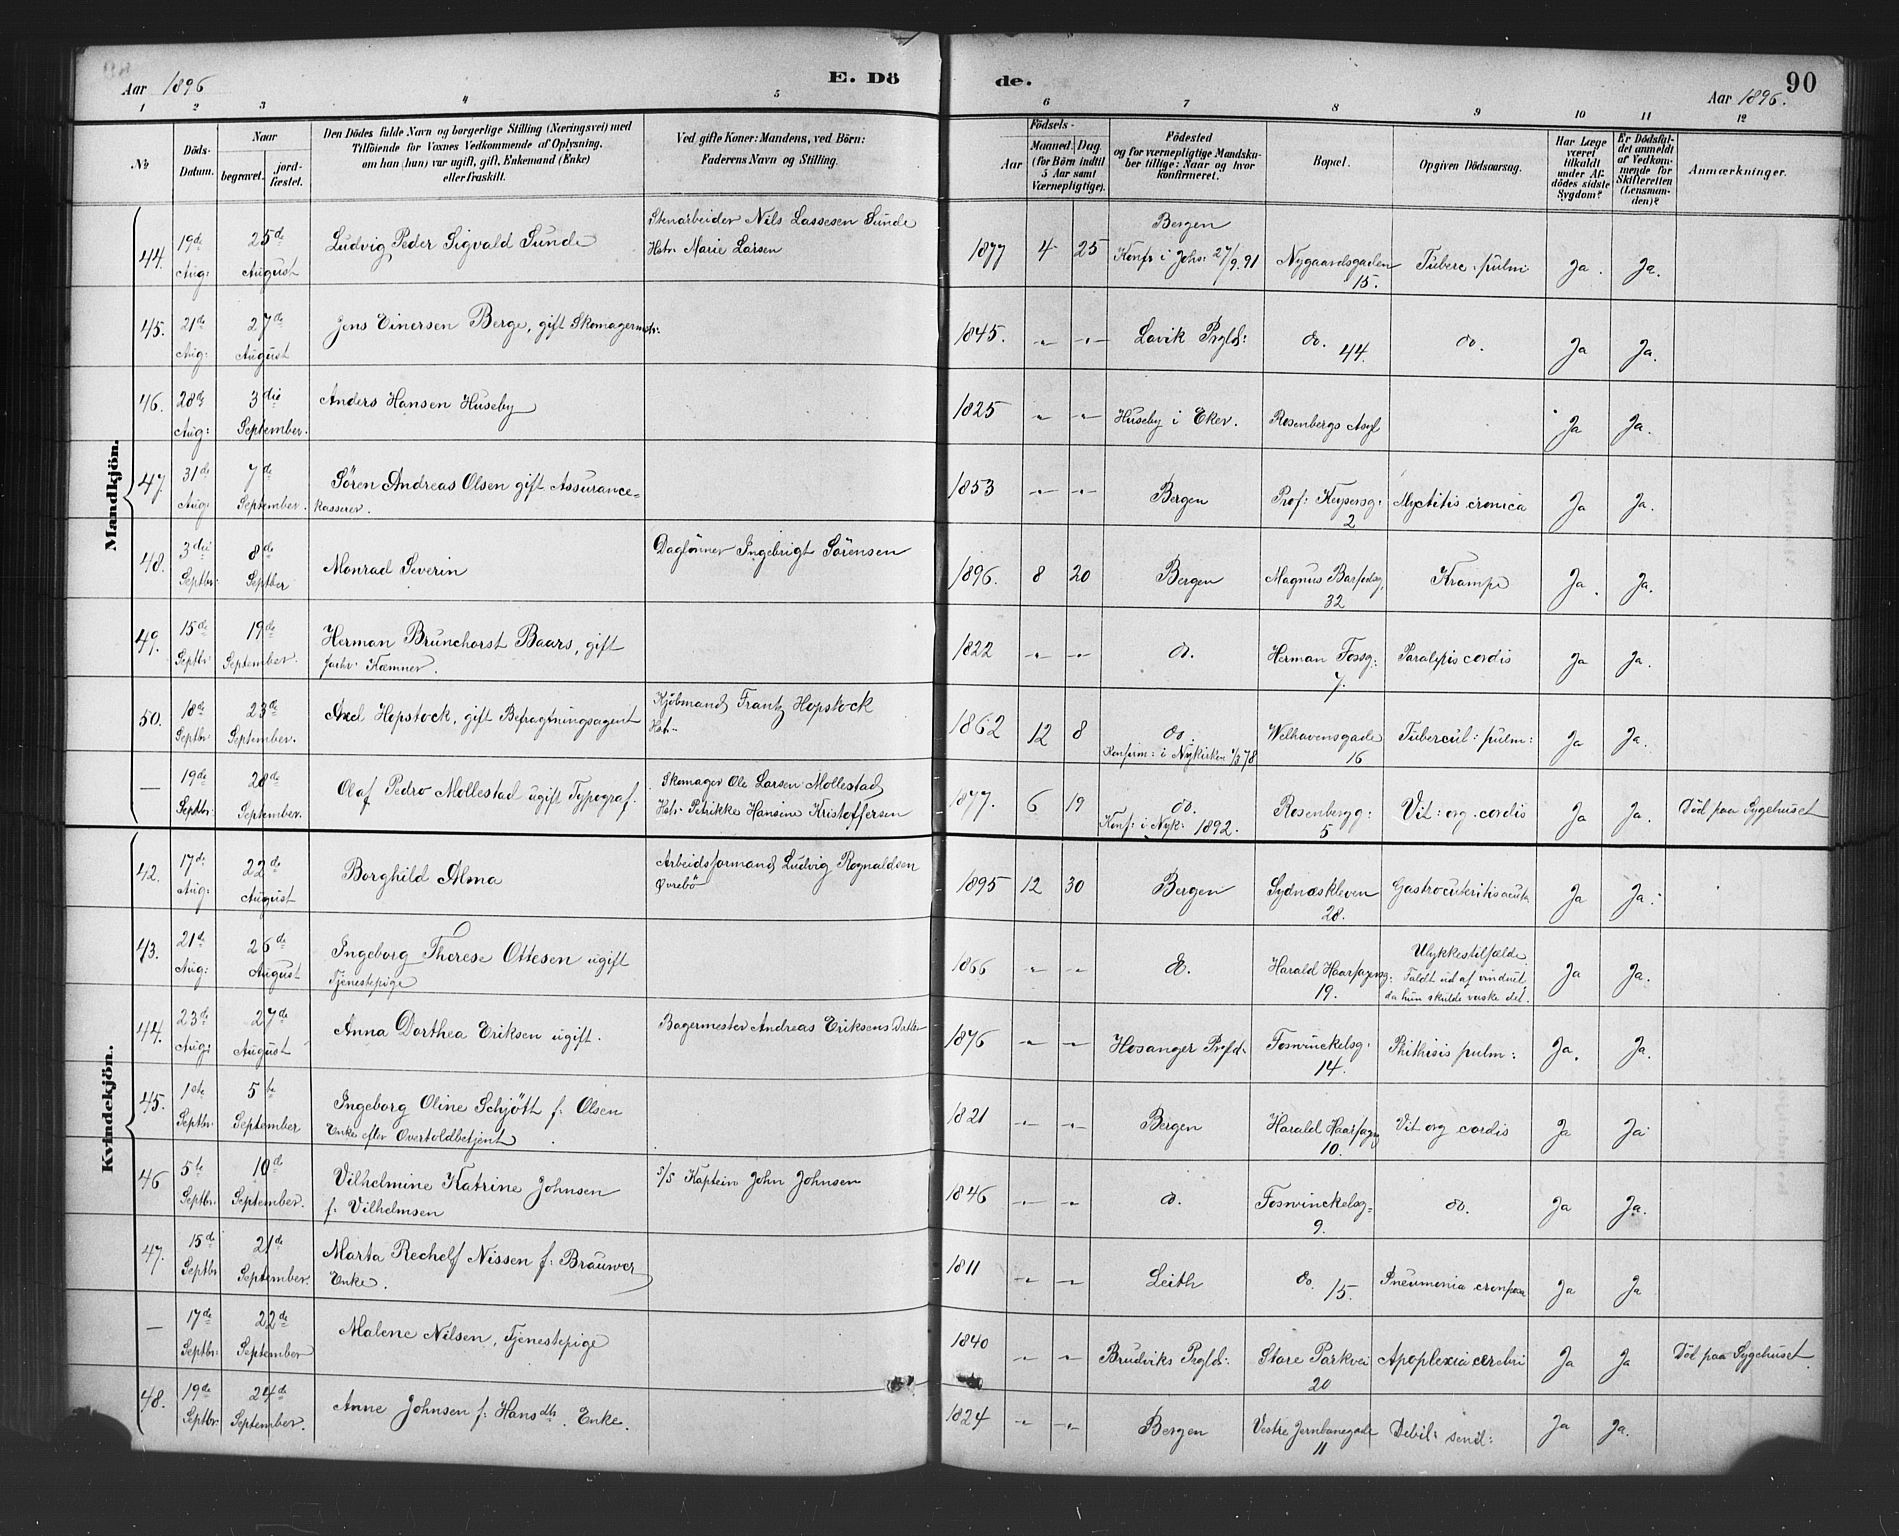 Aar 1896
E. Dö
de.
Aar 1896.
90
1 2 3 4 5 6 7 8 9 10 11 12
No
Döds-Datum.
Naar
begravet.
jord-fæstet.
Den Dödes fulde Navn og borgerlige Stilling (Næringsvei) med
Tilföiende for Voxnes Vedkommende af Oplysning,
om han (hun) var ugift, gift, Enkemand (Enke)
eller fraskilt.
Ved gifte Koner: Mandens, ved Börn:
Faderens Navn og Stilling.
Födsels-
Aar
Maaned.
Dag
(for Börn indtil
5 Aar samt
Værnepligtige).
Födested
og for værnepligtige Mandskaber tillige: Naar og hvor
konfirmeret.
Bopæl.
Opgiven Dödsaarsag.
Har Læge
været
tilkaldt
under Afdödes sidste
Sygdom?
Er Dödsfaldet anmeldt
af Vedkommende for
Skifteretten
(Lensmanden)?
Anmærkninger.
Mandkjön.
44. 19de Aug: 25de August Ludvig Peder Sigvald Sunde Stenarbeider Nils Lassesen Sunde Hstr. Marie Larsen 1877 4 25 Bergen Konfr i Johs: 27/9.91 Nygaardsgaden 15. Tuberc. pulm Ja. Ja.
45. 21de Aug: 27de August Jens Einersen Berge, gift Skomagermstr. 1845. " " Lavik Prgld: do. 44. do. Ja Ja.
46. 28de Aug: 3die September. Anders Hansen Huseby 1825 " " Huseby i Eker. Rosenbergs Asyl Ja Ja.
47. 31de Aug: 7de September. Sören Andreas Olsen gift Assurance=kasserer. 1853 " " Bergen Prof: Keysersg: 2 Myctitis cronica Ja Ja.
48. 3die Septbr: 8de Septber Monrad Severin Daglönner Ingebrigt Sörensen 1896. 8 20 Bergen Magnus Barfodsg. 32 Krampe Ja. Ja.
49. 15de Septbr 19de September. Herman Brunchorst Baars, gift Kæmner. 1822 " " do. Herman Fossg: 7. Paralysis cordis Ja Ja.
50. 18de Septbr 23de September. Axel Hopstock, gift Befragtningsagent Kjöbmand Frantz Hopstock Hst. 1862 12 8 do. Konfirm: i Nykirken 78 Welhavensgade 16 Tubercul: pulm: Ja Ja.
— 19de Septbr: 28de September. Olaf Pedro Mollestad ugift Typograf. Skomager Ole Larsen Mollestad Hstr. Petrikke Hansine Kristoffersen 1877. 6 19 do. Konf: i Nyk: 1892. Rosenbergg: 5 Vit: org. cordis Ja Ja. Död paa Sygehuset
Kvindekjön.
42. 17de Aug: 22de August Borghild Alma Arbeidsformand Ludvig Rognaldsen Övrebö 1895 12 30 Bergen Sydnæskleven 28. Gastroenteritis acuta Ja Ja.
43. 21de Aug: 26de August Ingeborg Therese Ottesen ugift Tjenestepige 1866 " " do. Harald Haarfagersg: 19. Ulykkestilfælde. Faldt ud af vinduet da hun skulde vaske det. Ja Ja.
44. 23de Aug: 27de August Anna Dorthea Eriksen ugift. Bagermester Andreas Eriksens Datter 1876 " " Hosanger Prgld. Foswinckelsg. 14. Phthisis pulm: Ja. Ja.
45. 1ste Septbr. 5te September Ingeborg Oline Schjött f. Olsen Enke efter Overtoldbetjent. 1821 " " Bergen Harald Haarfagrsg 10. Vit org cordis Ja Ja
46 5te Septbr. 10de September. Vilhelmine Katrine Johnsen f: Vilhelmsen S/S Kaptein John Johnsen 1846 " " do. Foswinckelsg= 9. do. Ja Ja.
47. 15de Septbr 21de September. Marta Rechelf Nissen f: Brauwer Enke. 1811 " " Leith do. 15. Pneumonia Ja Ja
— 17de Septbr: 22de September Malene Nilsen, Tjenestepige 1840 " " Brudviks Prgld. Store Parkvei 20 Apoplexia cerebri Ja Ja Död paa Sygehuset.
48. 19de Septbr 24de September. Anne Johnsen f: Hansdtr. Enke. 1824 " " Bergen Vestre Jernbanegade 11 Debil: senil: Ja Ja.